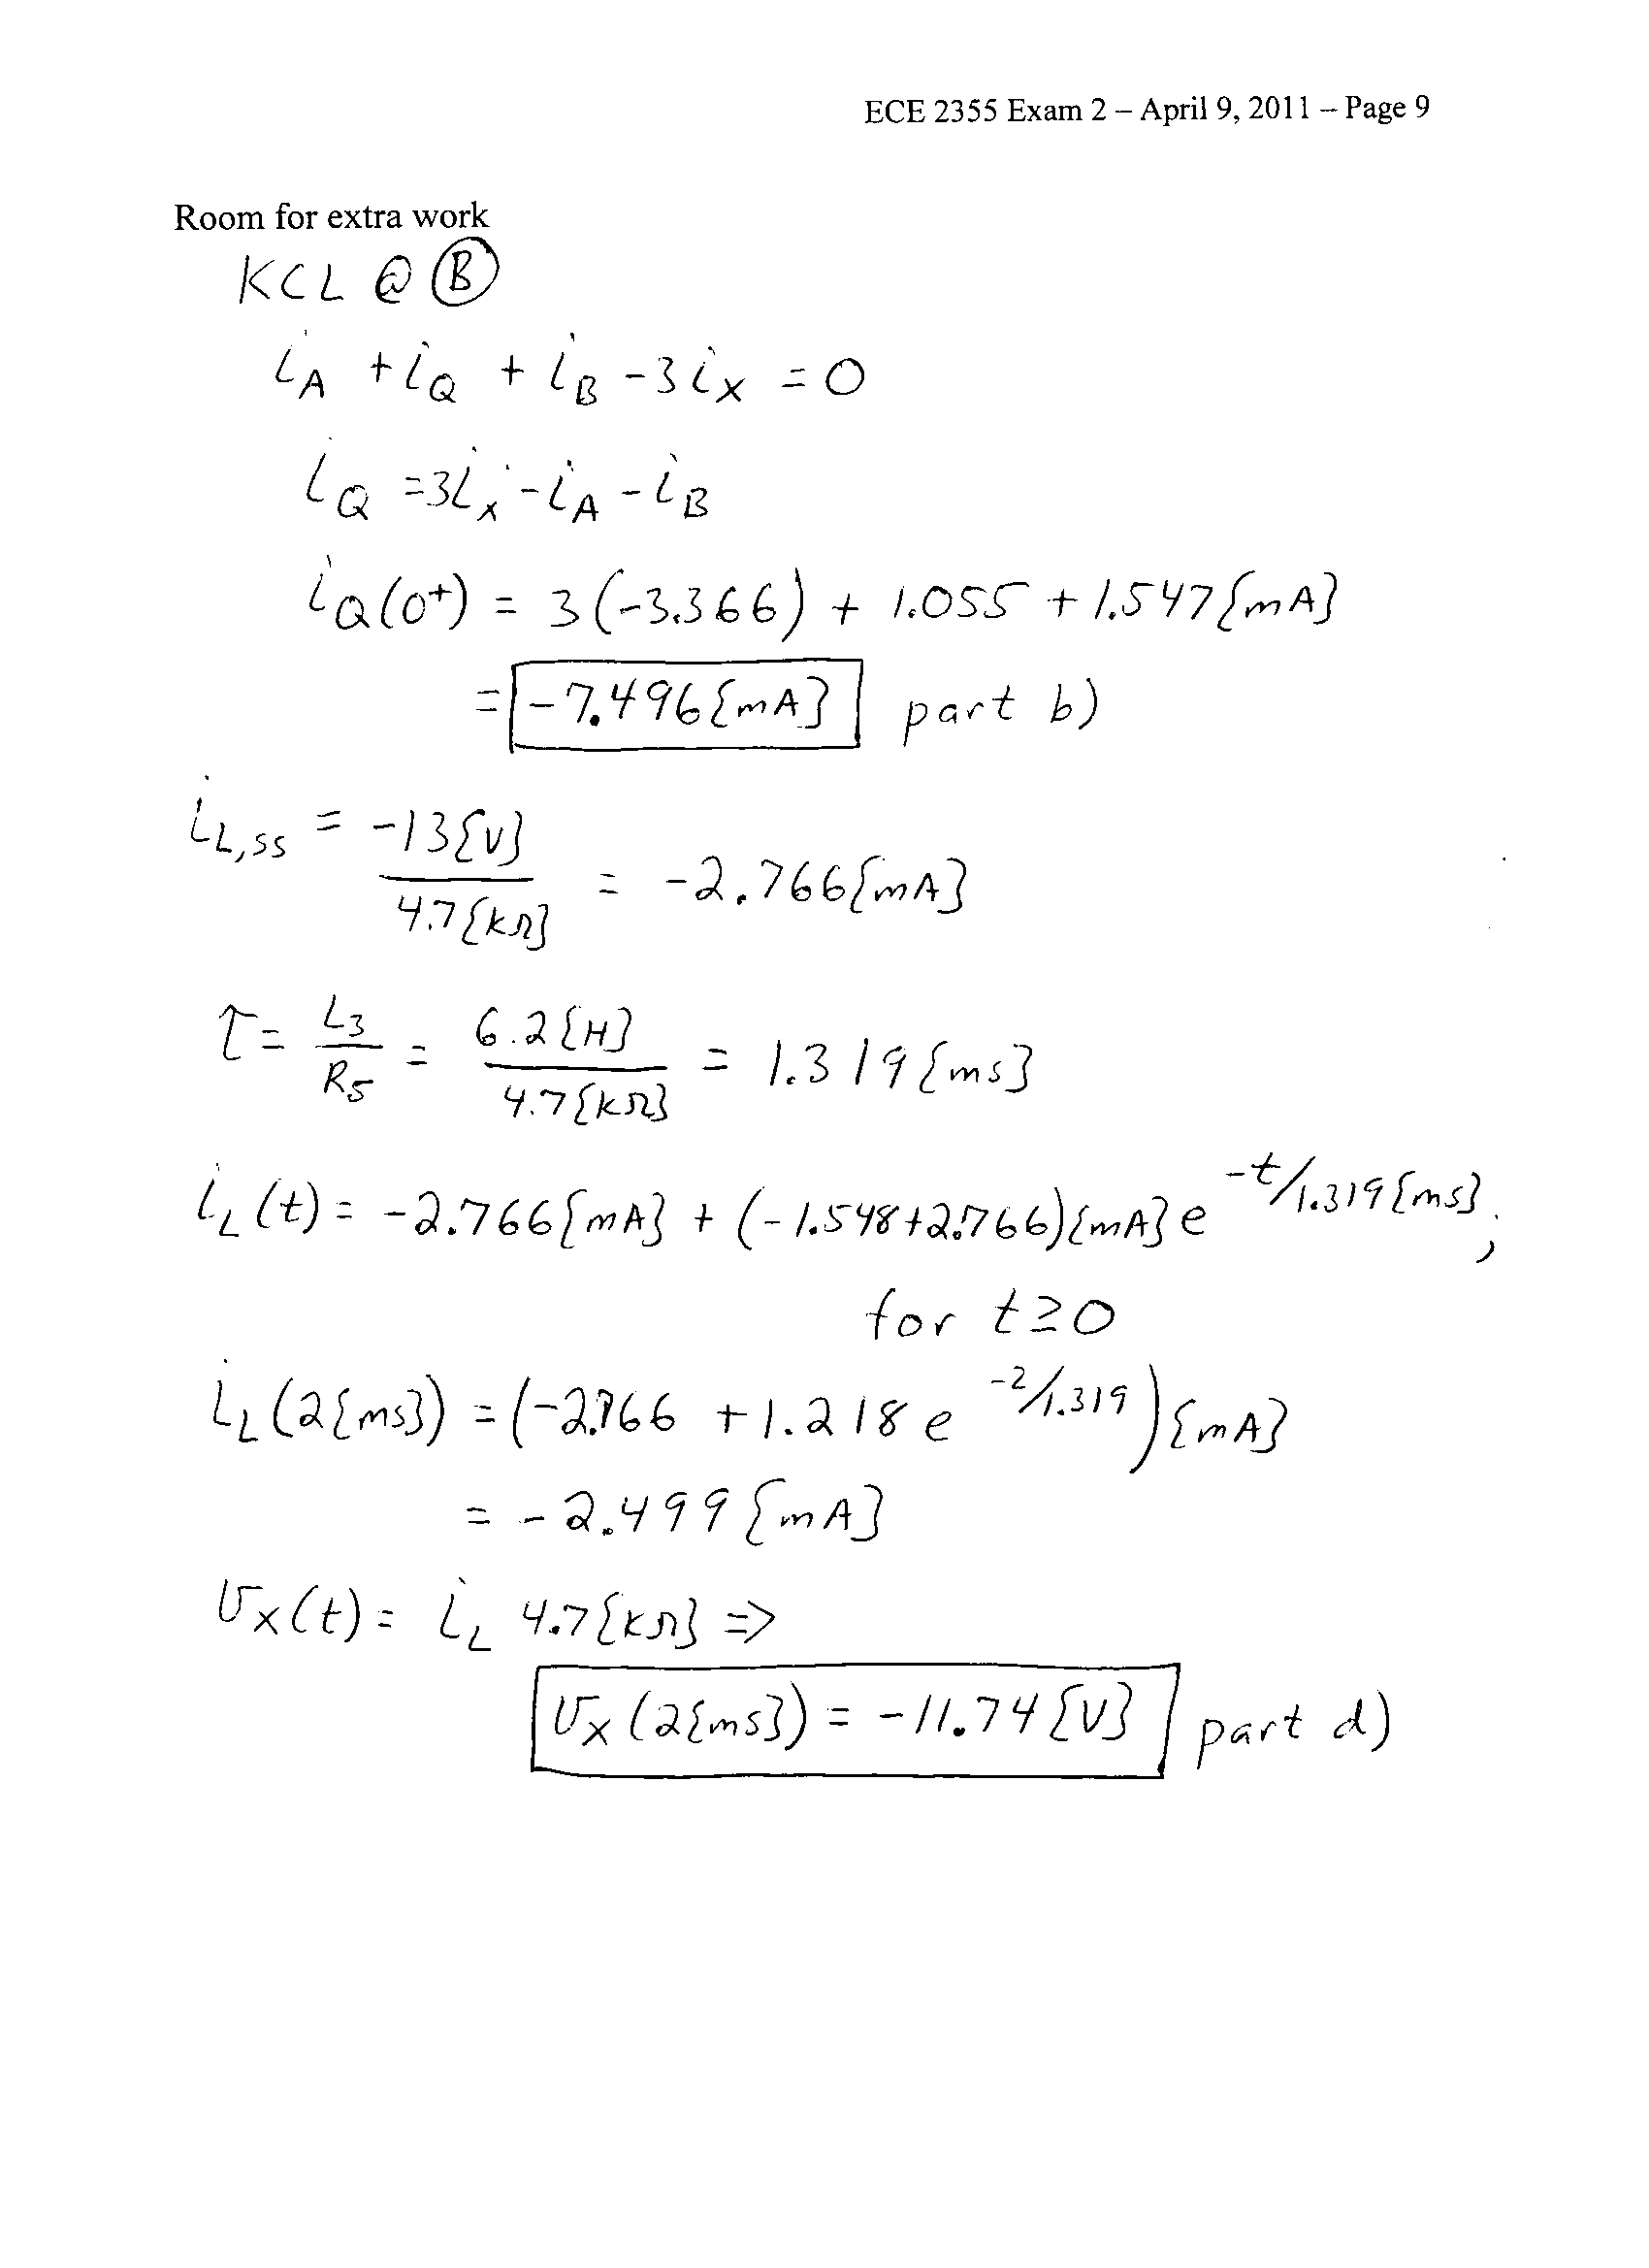 ECE 2355 Exam 2 – April 9, 2011 – Page 9
Room for extra work
KCL @ Ⓑ
i_A + i_Q + i_B - 3i_X = 0
i_Q = 3i_X - i_A - i_B
i_Q(0⁺) = 3(-3.366) + 1.055 + 1.547{mA}
= -7.496{mA} part b)
i_L,SS = -13{V} / 4.7{kΩ} = -2.766{mA}
τ = L_3 / R_5 = 6.2{H} / 4.7{kΩ} = 1.319{ms}
i_L(t) = -2.766{mA} + (-1.548+2.766){mA} e^(-t/1.319{ms});
for t≥0
i_L(2{ms}) = (-2.766 + 1.218 e^(-2/1.319)){mA}
= -2.499{mA}
v_X(t) = i_L 4.7{kΩ} =>
v_X(2{ms}) = -11.74{V} part d)